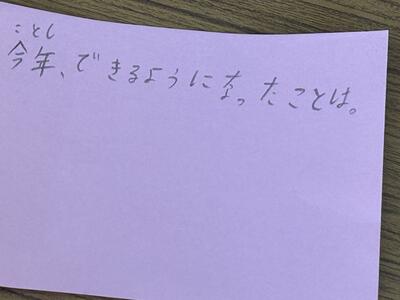 ことし
今年、できるようになったことは。